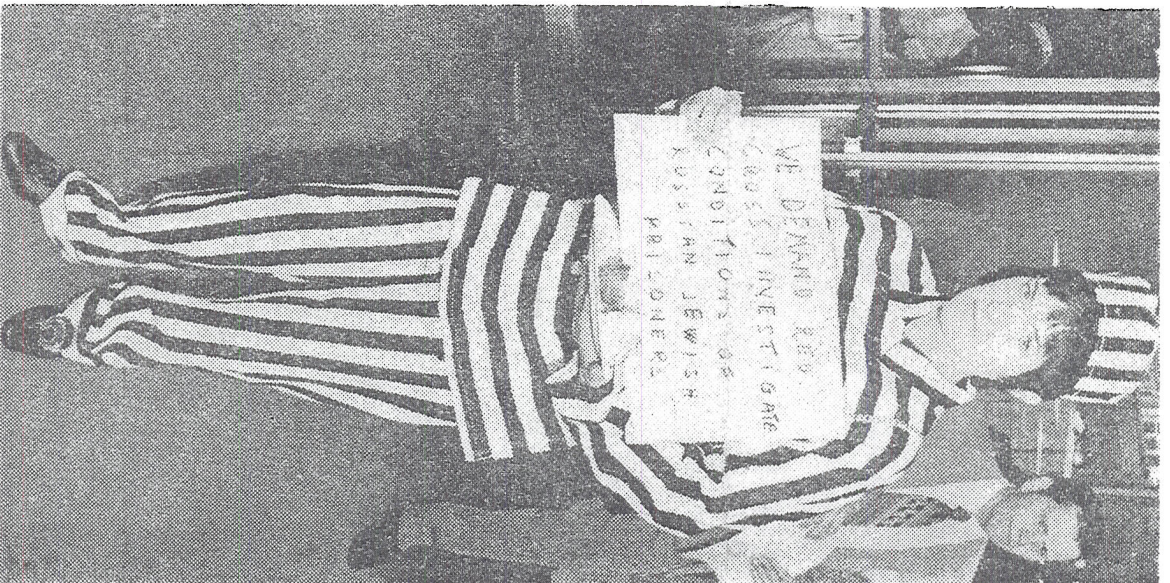 WE DEMAND RED
CROSS INVESTIGATE
CONDITIONS OF
RUSSIAN JEWISH
PRISONERS